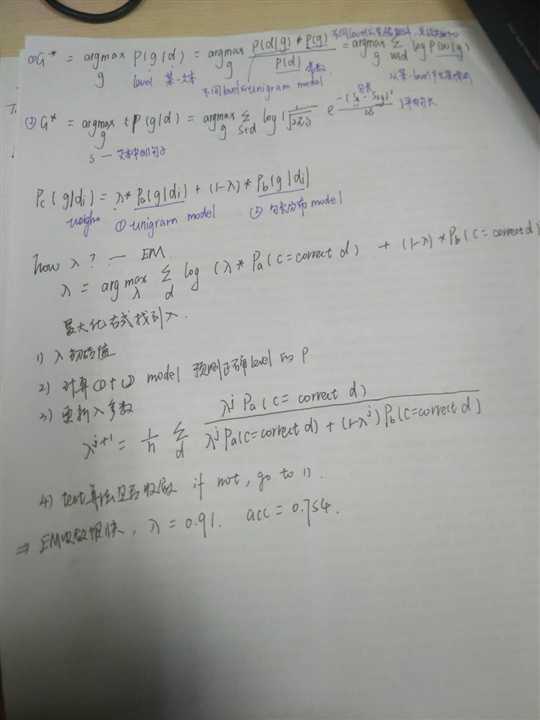 ① G* = argmax_g P(g|d) = argmax_g P(d|g) * P(g) / P(d) = argmax_g Σ_{w∈d} log P(w|g)
level 某一文本
不同level unigram model
常数
② G* = argmax_g P(g|d) = argmax_g Σ_{s∈d} log ( 1/√
s — 文本中的句子
平均句长
Pc(g|di) = λ * Pa(g|di) + (1-λ) * Pb(g|di)
weight ① unigram model ② 句长分布 model
how λ? — EM
λ = argmax_λ Σ_d log (λ * Pa(c=correct d) + (1-λ) * Pb(c=correct d)
最大化右式找到λ.
1) λ初始值
2) 计算①+② model 预测正确level的P
3) 更新λ参数
λ^{j+1} = 1/n Σ_d λ^j Pa(c=correct d) / λ^j Pa(c=correct d) + (1-λ^j) Pb(c=correct d)
4) test 算法是否收敛 if not, go to 1).
⇒ EM收敛很快, λ = 0.91. acc = 0.754.